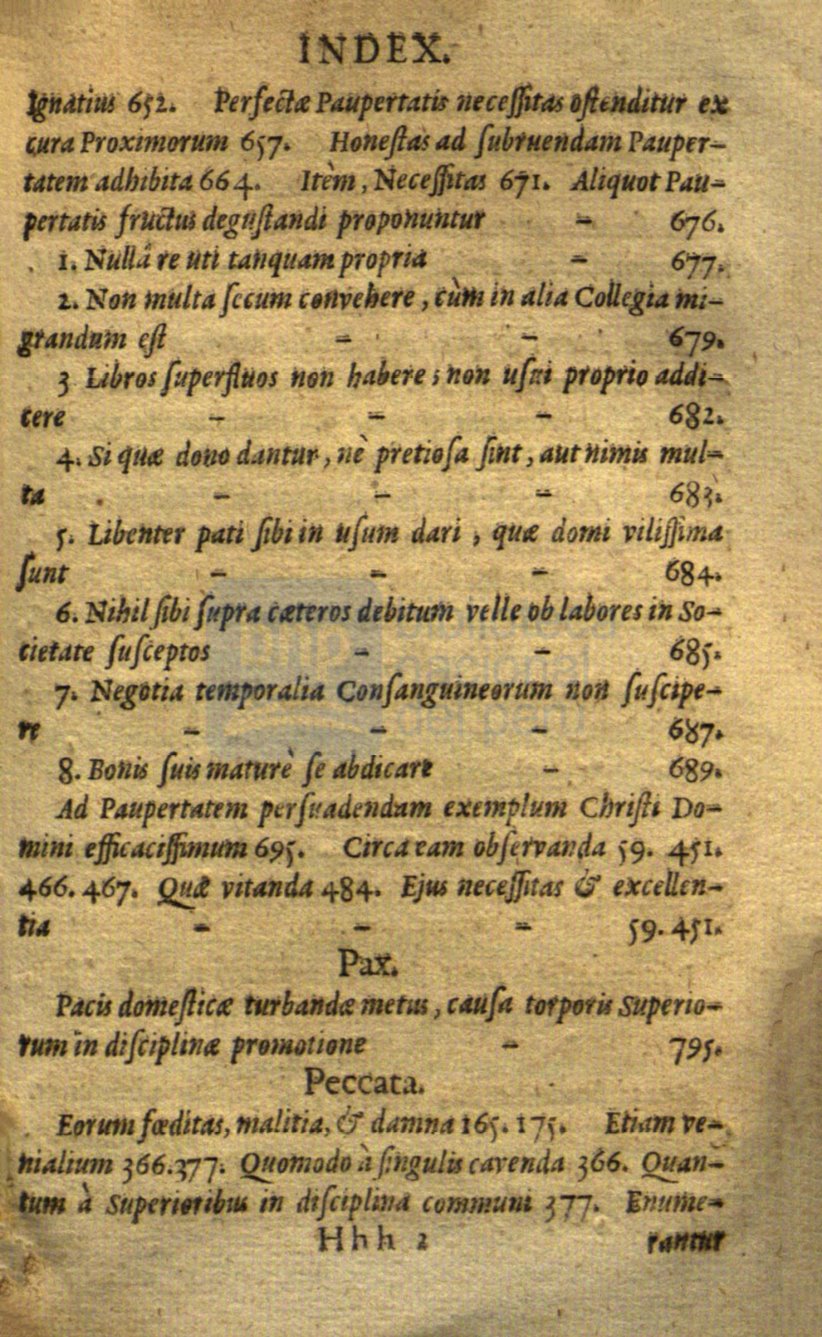 INDEX.
Ignatius 652. Perfectæ Paupertatis necessitas ostenditur ex
cura Proximorum 657. Honestas ad subruendam Pauper-
tatem adhibita 664. Itèm, Necessitas 671. Aliquot Pau-
pertatis fructus degustandi proponuntur - 676.
1. Nullâ re uti tanquam propria - 677.
2. Non multa secum convehere, cùm in alia Collegia mi-
grandum est - - 679.
3 Libros superfluos non habere; non usui proprio addi-
cere - - - 682.
4. Si quæ dono dantur, nè pretiosa sint, aut nimis mul-
ta - - - 683.
5. Libenter pati sibi in usum dari, quæ domi vilissima
sunt - - - 684.
6. Nihil sibi supra cæteros debitum velle ob labores in So-
cietate susceptos - - 685.
7. Negotia temporalia Consanguineorum non suscipe-
re - - - 687.
8. Bonis suis maturè se abdicare - 689.
Ad Paupertatem persuadendam exemplum Christi Do-
mini efficacissimum 695. Circa eam observanda 59. 451.
466. 467. Quæ vitanda 484. Ejus necessitas & excellen-
tia - - - 59. 451.
Pax.
Pacis domesticæ turbandæ metus, causa torporis Superio-
rum in disciplinæ promotione - 795.
Peccata.
Eorum fœditas, malitia, & damna 165. 175. Etiam ve-
nialium 366. 377. Quomodo à singulis cavenda 366. Quan-
tum à Superioribus in disciplina communi 377. Enume-
Hhh 2 rantur